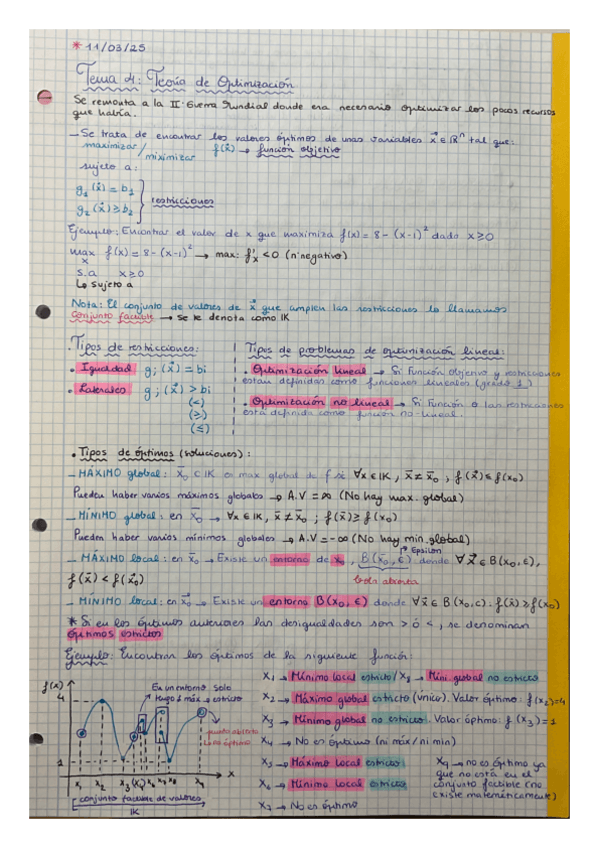 * 11/03/25
Tema 4: Teoría de Optimización
Se remonta a la II Guerra Mundial donde era necesario optimizar los pocos recursos
que había.
– Se trata de encontrar los valores óptimos de unas variables x⃗ ∈ ℝⁿ tal que:
maximizar/
minimizar f(x⃗) → función objetivo
sujeto a:
g₁(x⃗) = b₁
g₂(x⃗) ≥ b₂ } restricciones
Ejemplo: Encontrar el valor de x que maximiza f(x) = 8 – (x-1)² dado x ≥ 0
max f(x) = 8 – (x-1)² → max: f''ₓ < 0 (nº negativo)
x
s.a x ≥ 0
↳ sujeto a
Nota: El conjunto de valores de x⃗ que cumplen las restricciones lo llamamos
Conjunto factible → Se le denota como IK
• Tipos de restricciones:
• Igualdad gⱼ(x⃗) = bi
• Laterales gⱼ(x⃗) > bi
(<)
(≥)
(≤)
Tipos de problemas de optimización lineal:
• Optimización lineal → Si función objetivo y restricciones
están definidas como funciones lineales (grado 1)
• Optimización no lineal → Si función o las restricciones
está definida como función no-lineal.
• Tipos de óptimos (soluciones):
– MÁXIMO global: x̄₀ ∈ IK es max global de f si ∀x ∈ IK, x̄ ≠ x̄₀, f(x̄) ≤ f(x₀)
Pueden haber varios máximos globales → A.V = ∞ (No hay max. global)
– MÍNIMO global: en x̄₀ → ∀x ∈ IK, x̄ ≠ x̄₀; f(x̄) ≥ f(x₀)
Pueden haber varios mínimos globales → A.V = -∞ (No hay min. global)
– MÁXIMO local: en x̄₀ → Existe un entorno de x₀, B(x̄₀, ε) donde ∀x⃗ ∈ B(x₀, ε),
Epsilon
f(x̄) < f(x⃗₀)
bola abierta
– MÍNIMO local: en x⃗₀ → Existe un entorno B(x₀, ε) donde ∀x̄ ∈ B(x₀, ε): f(x̄) ≥ f(x₀)
* Si en los óptimos anteriores las desigualdades son > ó <, se denominan
óptimos estrictos
Ejemplo: Encontrar los óptimos de la siguiente función:
f(x)
4
1
En un entorno solo
tengo 1 máx → estricto
punto abierto
no óptimo
x₁ x₂ x₃ (x₄) x₅ x₆ x₇ x₈ x₉ x
[conjunto factible de valores]
IK
x₁ → Mínimo local estricto / x₈ → Mini. global no estricto
x₂ → Máximo global estricto (único). Valor óptimo: f(x₂)=4
x₃ → Mínimo global no estricto. Valor óptimo: f(x₃)=1
x₄ → No es óptimo (ni máx/ni min)
x₅ → Máximo local estricto
x₆ → Mínimo local estricto
x₇ → No es óptimo
x₉ → no es óptimo ya
que no está en el
conjunto factible (no
existe matemáticamente)